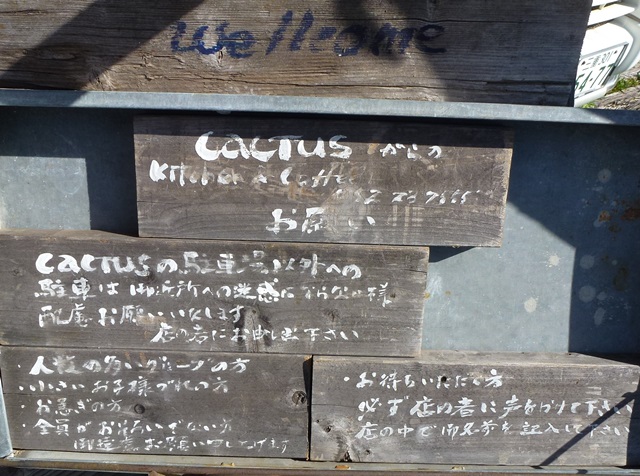 Wellcome
三重 301
54-77
CACTUS からの
Kitchen & Coffee
お願い
CACTUSの駐車場以外への
駐車は御近所への迷惑にならぬ様
配慮お願いいたします
店の者にお申し出下さい
・人数の多いグループの方
・小さいお子様づれの方
・お急ぎの方
・全員がおそろいでない方
御遠慮お願い申し上げます
・お待ちいただく方
必ず店の者に声をかけて下さい
店の中で御名前を記入して下さい